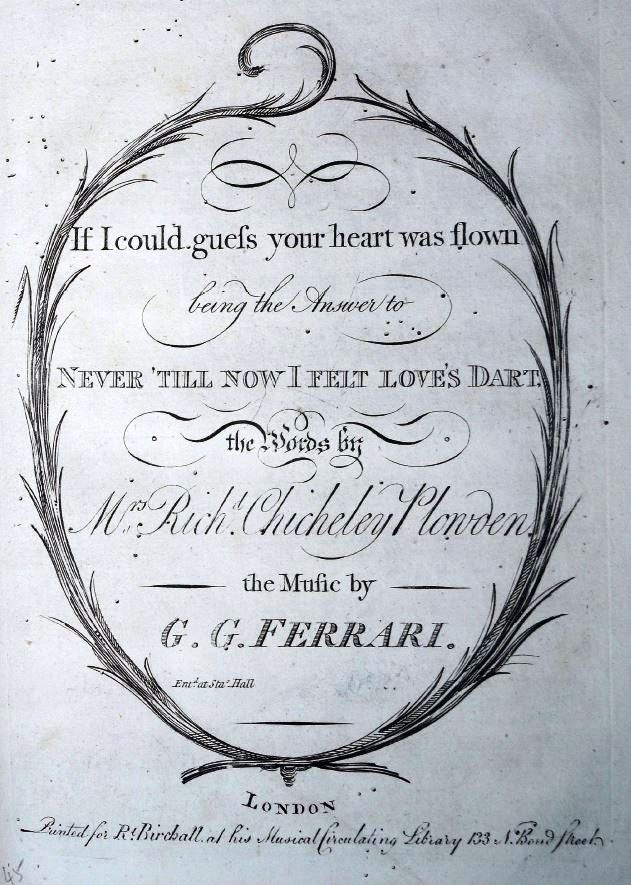 If I could gueſs your heart was flown
being the Answer to
NEVER 'TILL NOW I FELT LOVE'S DART.
the Words by
Mrs. Richd. Chicheley Plowden.
the Muſic by
G. G. FERRARI.
Entd. at Stars. Hall
LONDON
Printed for Rt. Birchall. at his Musical Circulating Library 133 Nw. Bond Street.
45